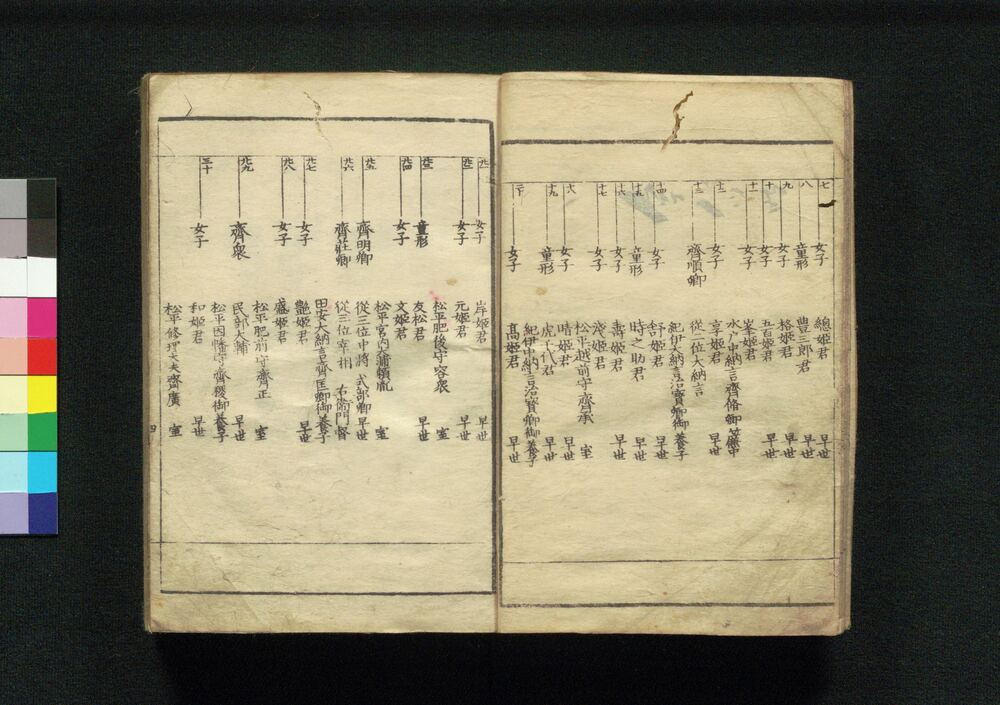 七
女子
總姫君
早世
八
童形
豊三郎君
早世
九
女子
格姫君
早世
十
女子
五百姫君
早世
十一
女子
峯姫君
水戸中納言齊脩卿簾中
十二
女子
亨姫君
早世
十三
齊順卿
從二位大納言
紀伊大納言治寶卿御養子
十四
女子
舒姫君
早世
十五
童形
時之助君
早世
十六
女子
壽姫君
早世
十七
女子
浅姫君
松平越前守齊承
室
十八
女子
晴姫君
早世
十九
童形
虎千代君
早世
紀伊中納言治寶卿御養子
二十
女子
高姫君
早世
廿一
女子
岸姫君
早世
廿二
女子
元姫君
早世
松平肥後守容衆
室
廿三
童形
友松君
早世
廿四
女子
文姫君
松平宮内大輔頼胤
室
廿五
齊明卿
從三位中將
式部卿
早世
廿六
齊莊卿
從三位宰相
右衛門督
田安大納言齊匡卿御養子
廿七
女子
艶姫君
早世
廿八
女子
盛姫君
松平肥前守齊正
室
廿九
齊衆
民部大輔
早世
松平因幡守齊稷御養子
三十
女子
和姫君
早世
松平修理大夫齊廣
室
四